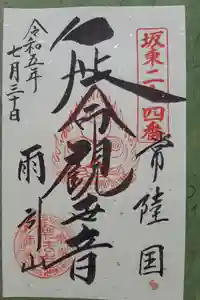 坂東二十四番
常陸国
延命觀世音
雨引山
令和五年
七月三十日